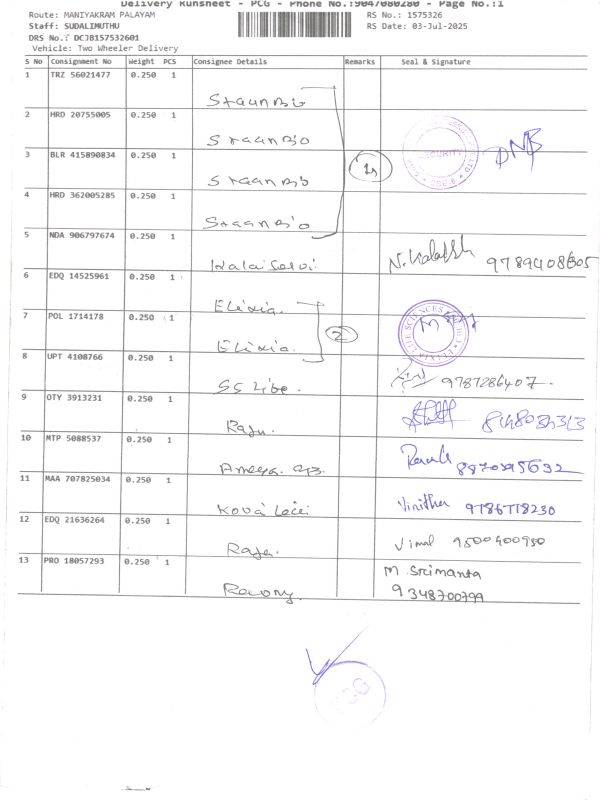 Delivery Runsheet - PCG - Phone No.:9047080280 - Page No.:1
Route: MANIYAKRAM PALAYAM RS No.: 1575326
Staff: SUDALIMUTHU RS Date: 03-Jul-2025
DRS No.: DCJB157532601
Vehicle: Two Wheeler Delivery
S No Consignment No Weight PCS Consignee Details Remarks Seal & Signature
1 TRZ 56021477 0.250 1
StaanBio
2 HRD 20755005 0.250 1
StaanBio
SECURITY
3 BLR 415890834 0.250 1
StaanBio
4 HRD 362005285 0.250 1
StaanBio
5 NDA 906797674 0.250 1
Kalai Selvi
6 EDQ 14525961 0.250 1
Elixia.
7 POL 1714178 0.250 1
2
Elixia.
8 UPT 4108766 0.250 1
9787286407.
9 OTY 3913231 0.250 1
Raju.
10 MTP 5088537 0.250 1
11 MAA 707825034 0.250 1
Vinitha 9786778230
12 EDQ 21636264 0.250 1
Vimal 9500400950
Raja.
13 PRO 18057293 0.250 1
M Srimanta
9348700799